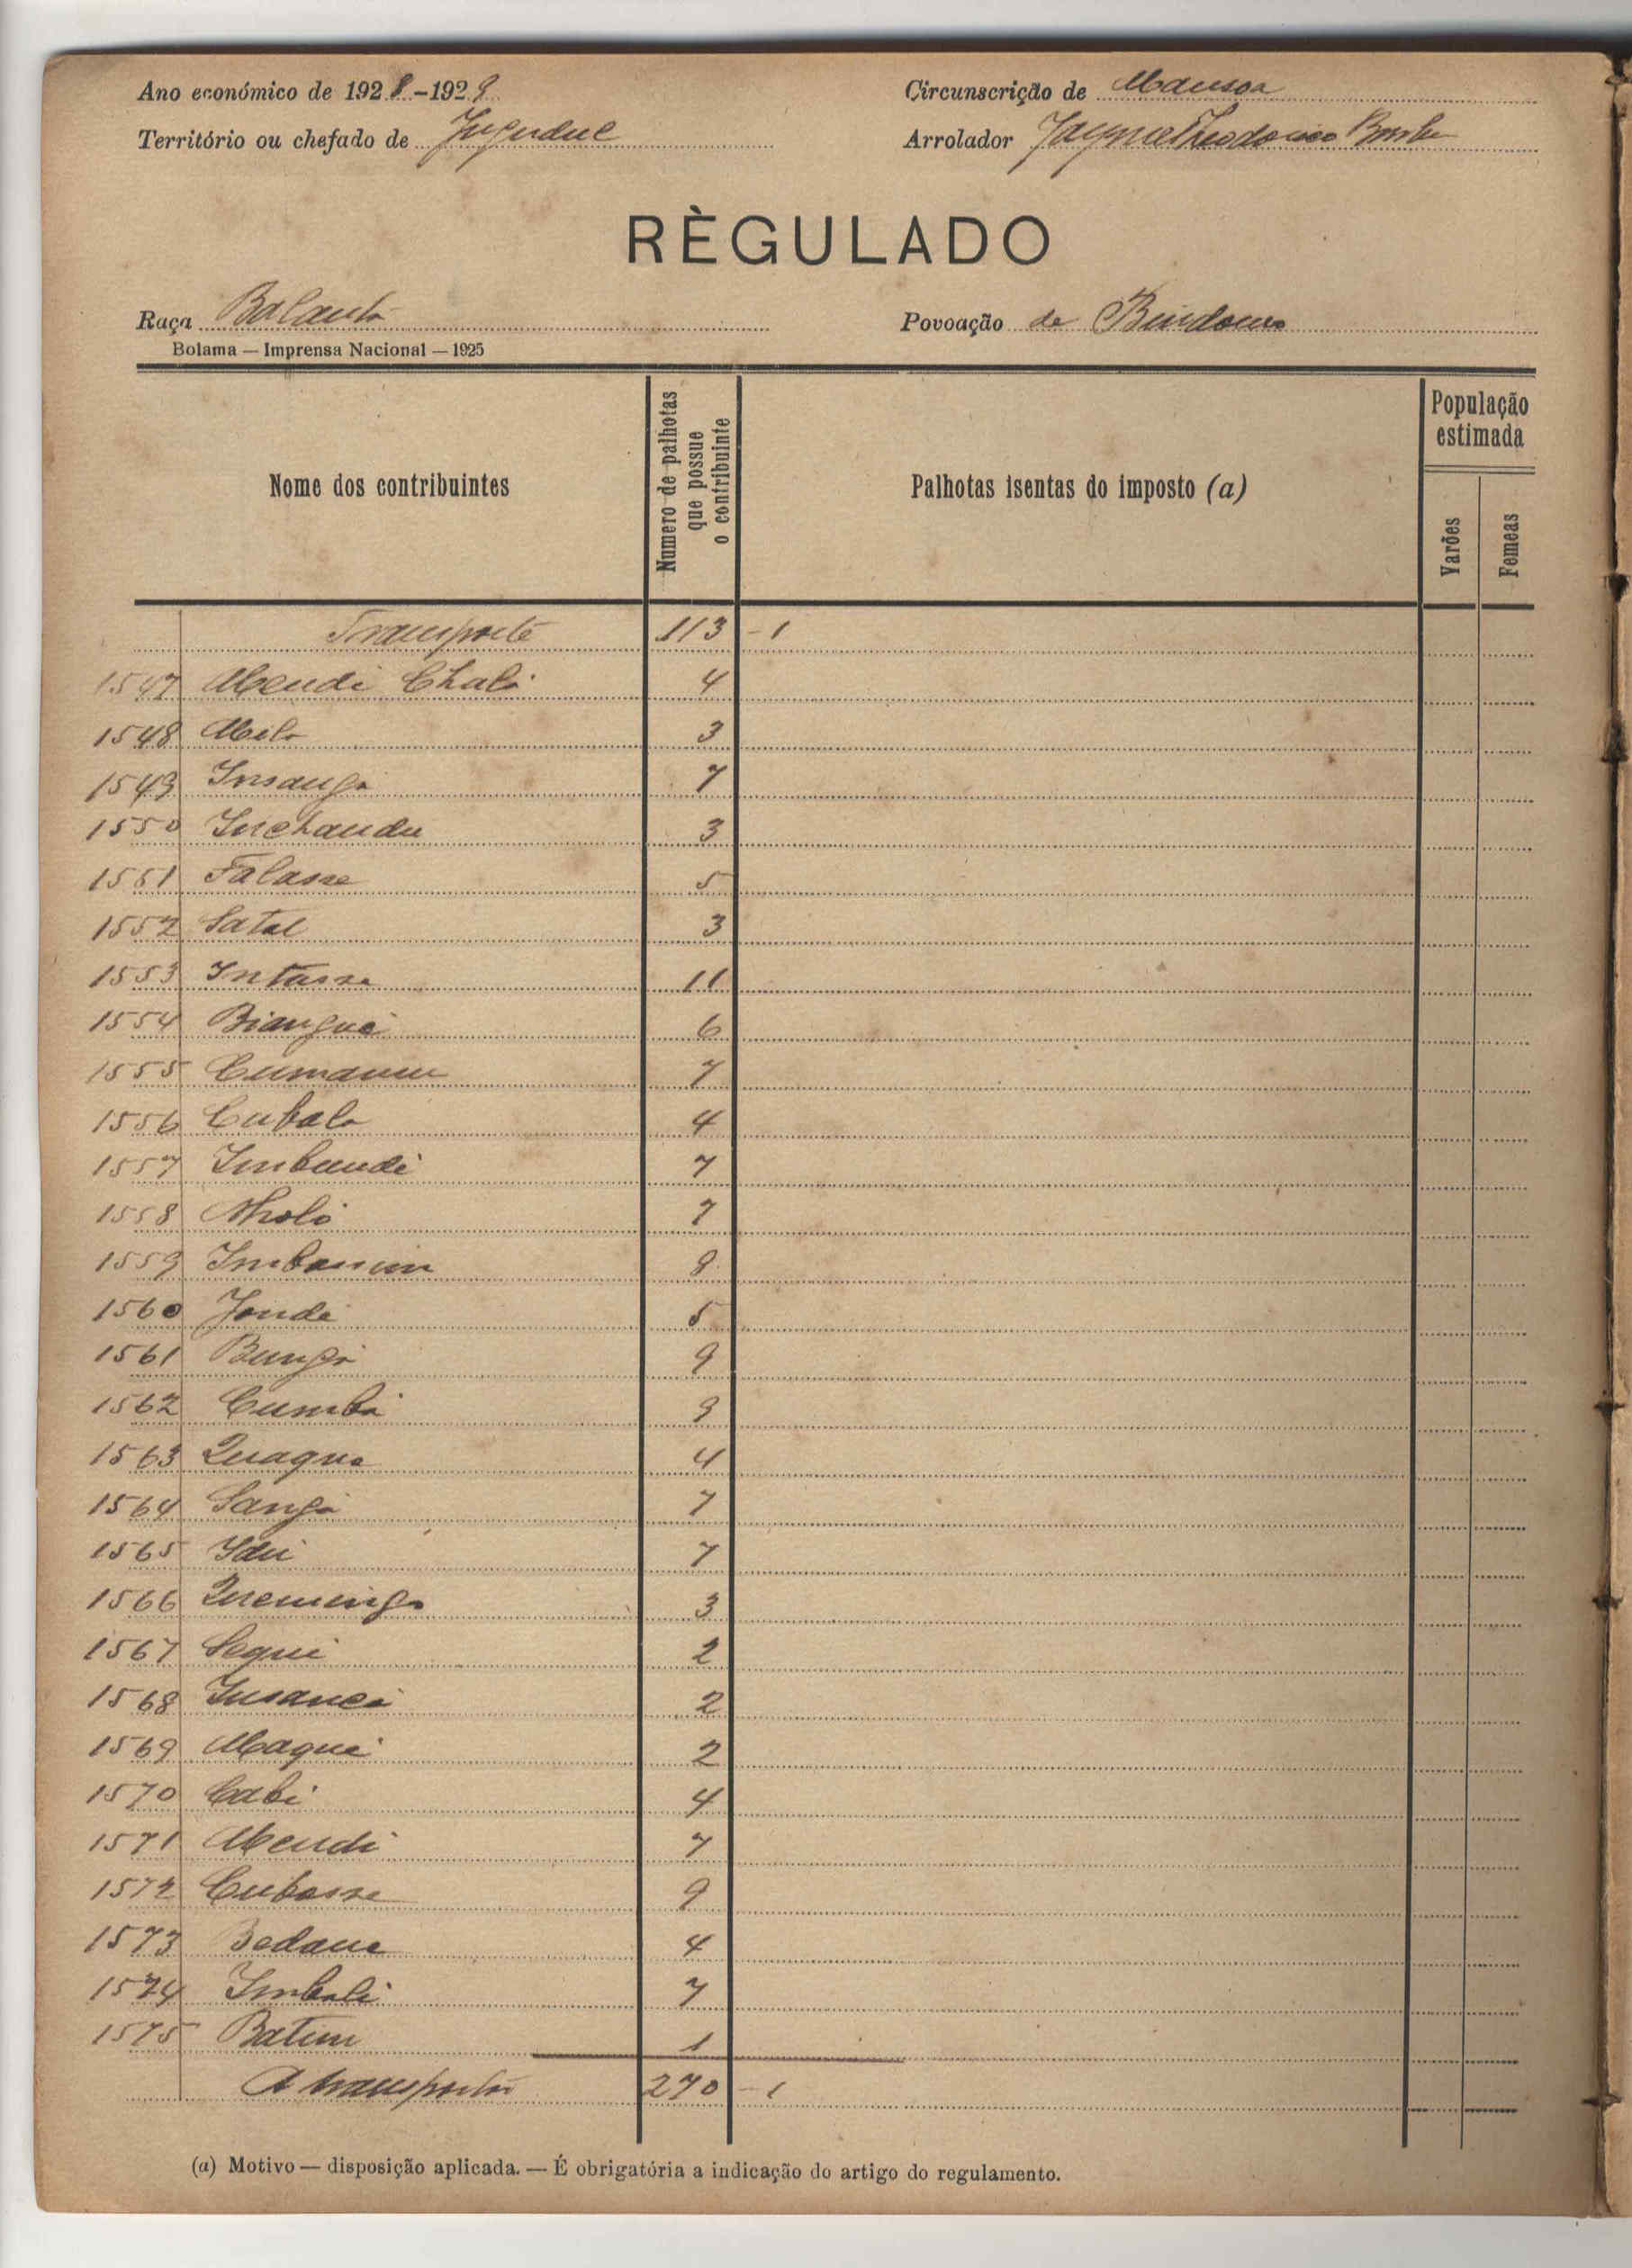 Ano económico de 1928-1929
Circunscrição de Mansoa
Território ou chefado de Jugudul
Arrolador Jayme Theodorico
RÈGULADO
Raça Balanta
Povoação de
Bolama — Imprensa Nacional — 1925
Nome dos contribuintes
Numero de palhotas que possue o contribuinte
Palhotas isentas do imposto (a)
População estimada
Varões
Femeas
Transporte 113 - 1
1547 Mendi Chalá 4
1548 Mila 3
1549 Insanga 7
1550 Inchandu 3
1551 Falasse 5
1552 Satal 3
1553 Intasse 11
1554 Biangué 6
1555 7
1556 Cubala 4
1557 Imbundé 7
1558 7
1559 8
1560 Jondé 5
1561 Bunga 9
1562 Cumba 9
1563 Quaque 4
1564 Sanga 7
1565 Idu 7
1566 3
1567 Sequi 2
1568 2
1569 Maqué 2
1570 Cabi 4
1571 Mendi 7
1572 Cubasse 9
1573 Bedane 4
1574 Imbali 7
1575 Batum 1
A transportar 270 - 1
(a) Motivo — disposição aplicada. — É obrigatória a indicação do artigo do regulamento.